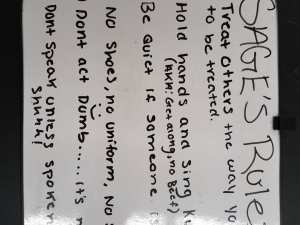 SAGE'S Rule
Treat others the way yo
to be treated.
Hold hands and sing K
(AKA: Get along, no Beef)
Be Quiet if someone is
No Shoes, no uniform, No
Dont act Dumb.... it's
Dont speak unless spoken
Shhhh!